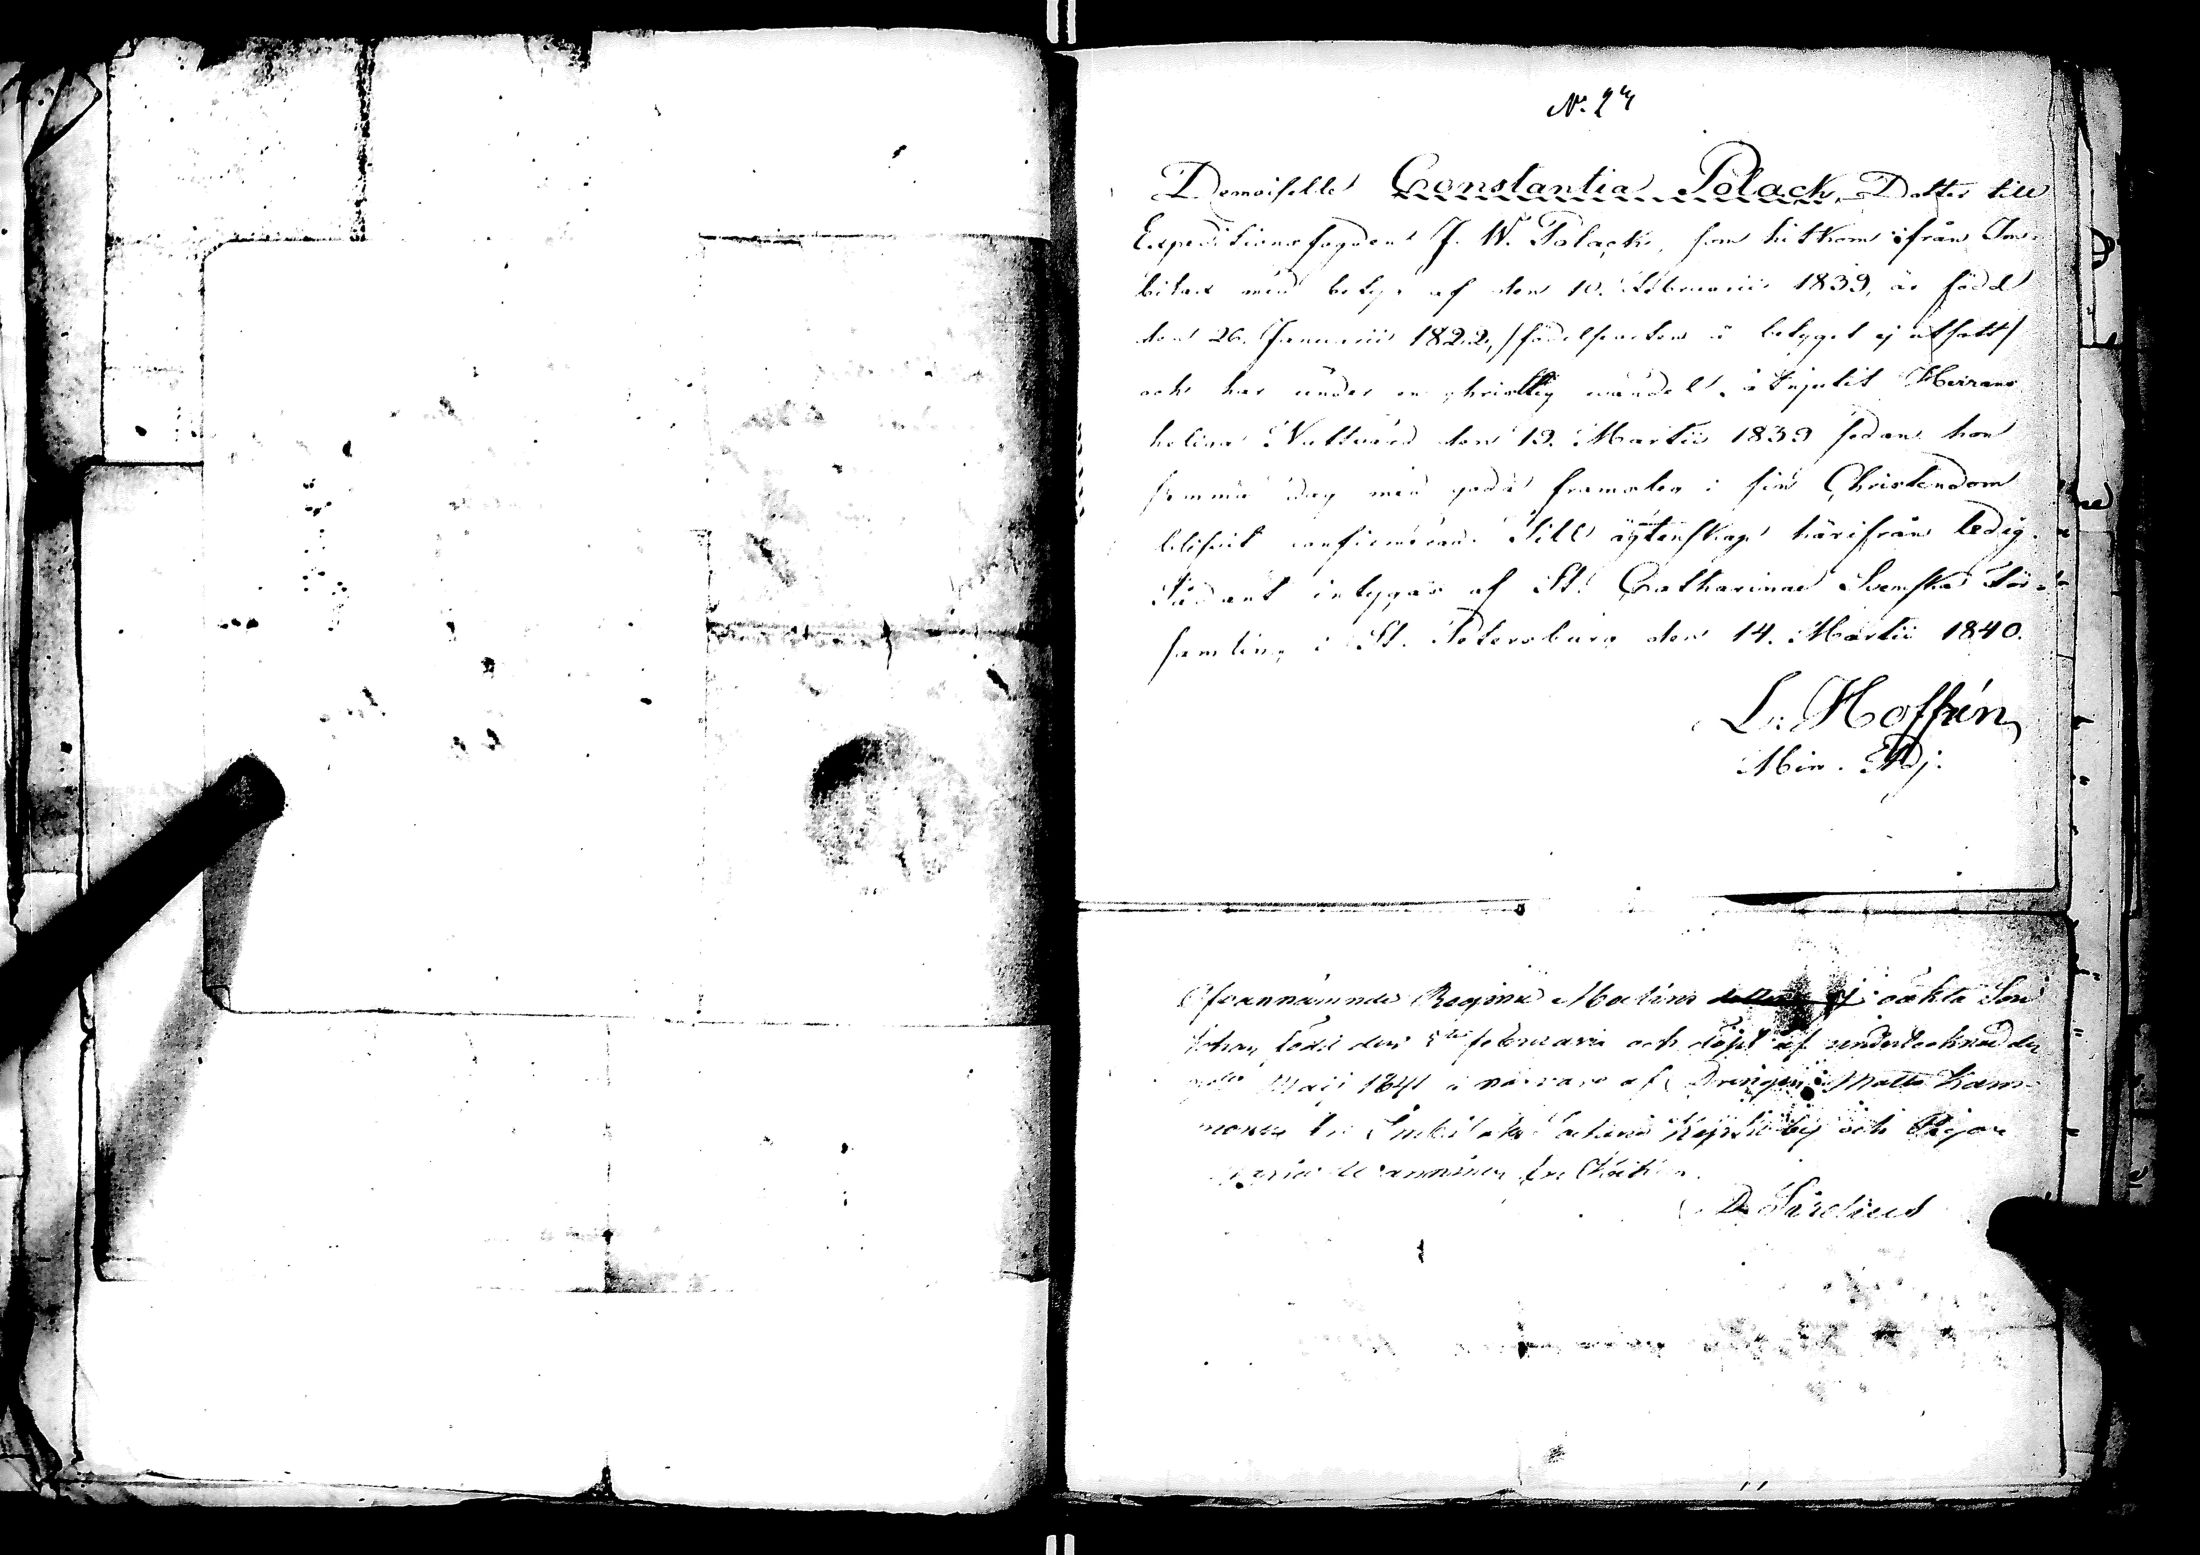 N. 27
Demoiselle Constantia Polack, Dotter till
Expeditionsfogden J. W. Polack, som hitkom ifrån Im-
bilax med betyg af den 10. Februarii 1839, är född
den 26. Januarii 1822, /födelseorten i betyget ej utsatt/
och har under en christlig vandel, åtnjutit Herrans
helina Nattvard den 19. Martii 1839 sedan hon
samma dag med goda framsteg i sin Christendom
blifvit confirmerad. Till äqtenskap härifrån ledig.
Sådant intygar af St. Catharinae Svenska För-
samling i St. Petersburg den 14. Martii 1840.
L. Hoffrén
Min. Adj.
Ofvannämnde Regina oäkta Son
Johan, född den februarii och döpt af undertecknad den
Maji 1841 i närvaro af Drängen Matts
by och Pigan
Maria
D. Sirelius